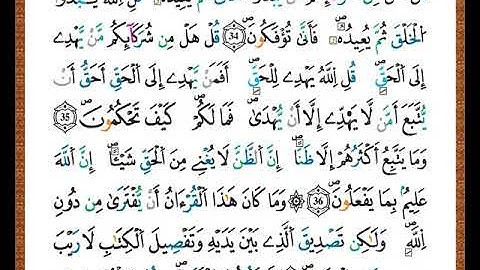 ٱلْخَلْقَ ثُمَّ يُعِيدُهُۥ ۖ فَأَنَّىٰ تُؤْفَكُونَ ۝٣٤ قُلْ هَلْ مِن شُرَكَآئِكُم مَّن يَهْدِىٓ
إِلَى ٱلْحَقِّ ۚ قُلِ ٱللَّهُ يَهْدِى لِلْحَقِّ ۗ أَفَمَن يَهْدِىٓ إِلَى ٱلْحَقِّ أَحَقُّ أَن
يُتَّبَعَ أَمَّن لَّا يَهِدِّىٓ إِلَّآ أَن يُهْدَىٰ ۖ فَمَا لَكُمْ كَيْفَ تَحْكُمُونَ ۝٣٥
وَمَا يَتَّبِعُ أَكْثَرُهُمْ إِلَّا ظَنًّا ۚ إِنَّ ٱلظَّنَّ لَا يُغْنِى مِنَ ٱلْحَقِّ شَيْـًٔا ۚ إِنَّ ٱللَّهَ
عَلِيمٌۢ بِمَا يَفْعَلُونَ ۝٣٦ ۞ وَمَا كَانَ هَٰذَا ٱلْقُرْءَانُ أَن يُفْتَرَىٰ مِن دُونِ
ٱللَّهِ وَلَٰكِن تَصْدِيقَ ٱلَّذِى بَيْنَ يَدَيْهِ وَتَفْصِيلَ ٱلْكِتَٰبِ لَا رَيْبَ